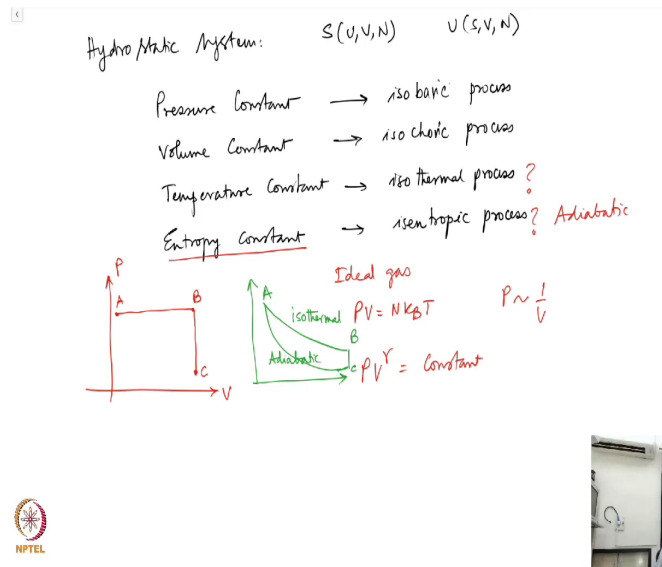 Hydrostatic System: S(U,V,N) U(S,V,N)
Pressure Constant → isobaric process
Volume Constant → isochoric process
Temperature Constant → isothermal process ?
Entropy Constant → isentropic process ? Adiabatic
P
A B
C
V
A
isothermal
B
Adiabatic
C
Ideal gas
PV = NK_BT P ~ 1/V
PV^γ = Constant
NPTEL